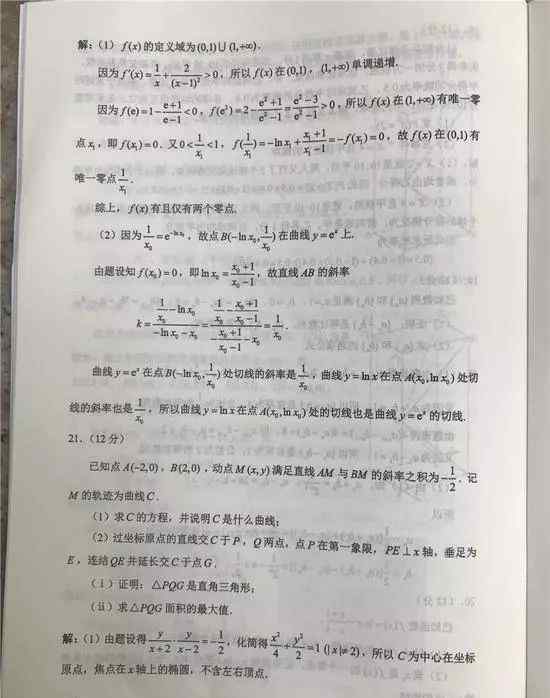 解:(1) f(x)的定义域为(0,1)∪(1,+∞).
因为f′(x)=1/x+2/(x−1)²>0,所以f(x)在(0,1),(1,+∞)单调递增.
因为f(e)=1−(e+1)/(e−1)<0,f(e²)=2−(e²+1)/(e²−1)=(e²−3)/(e²−1)>0,所以f(x)在(1,+∞)有唯一零
点x₁,即f(x₁)=0.又0<1/x₁<1,f(1/x₁)=−ln x₁+(x₁+1)/(x₁−1)=−f(x₁)=0,故f(x)在(0,1)有
唯一零点1/x₁.
综上,f(x)有且仅有两个零点.
(2)因为1/x₀=e^(−ln x₀),故点B(−ln x₀,1/x₀)在曲线y=eˣ上.
由题设知f(x₀)=0,即ln x₀=(x₀+1)/(x₀−1),故直线AB的斜率
k=(1/x₀−ln x₀)/(−ln x₀−x₀)=(1/x₀−(x₀+1)/(x₀−1))/(−(x₀+1)/(x₀−1)−x₀)=1/x₀.
曲线y=eˣ在点B(−ln x₀,1/x₀)处切线的斜率是1/x₀,曲线y=ln x在点A(x₀,ln x₀)处切
线的斜率也是1/x₀,所以曲线y=ln x在点A(x₀,ln x₀)处的切线也是曲线y=eˣ的切线.
21.(12分)
已知点A(−2,0),B(2,0),动点M(x,y)满足直线AM与BM的斜率之积为−1/2.记
M的轨迹为曲线C.
(1)求C的方程,并说明C是什么曲线;
(2)过坐标原点的直线交C于P,Q两点,点P在第一象限,PE⊥x轴,垂足为
E,连结QE并延长交C于点G.
(ⅰ)证明:△PQG是直角三角形;
(ⅱ)求△PQG面积的最大值.
解:(1)由题设得y/(x+2)·y/(x−2)=−1/2,化简得x²/4+y²/2=1(|x|≠2),所以C为中心在坐标
原点,焦点在x轴上的椭圆,不含左右顶点.